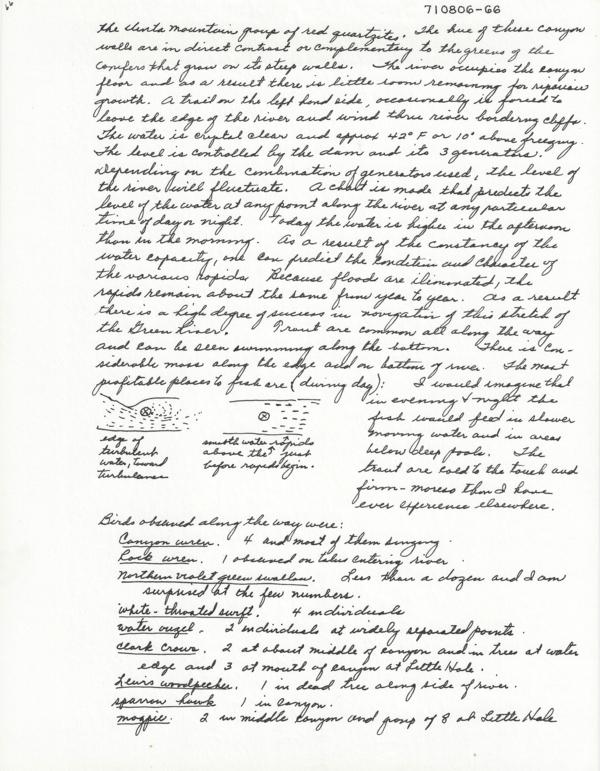 710806-66
the Uinta Mountain group of red quartzites. The hue of these canyon
walls are in direct contrast or complementary to the greens of the
conifers that grow on its steep walls. The river occupies the canyon
floor and as a result there is little room remaining for riparian
growth. A trail on the left hand side, occasionally is forced to
leave the edge of the river and wind thru river bordering cliffs.
The water is crystal clear and approx 42° F or 10° above freezing.
The level is controlled by the dam and its 3 generators.
Depending on the combination of generators used, the level of
the river will fluctuate. A chart is made that predicts the
level of the water at any point along the river at any particular
time of day or night. Today the water is higher in the afternoon
than in the morning. As a result of the constancy of the
water capacity, one can predict the condition and character of
the various rapids. Because floods are iliminated, the
rapids remain about the same from year to year. As a result
there is a high degree of success in navigation of this stretch of
the Green River. Trout are common all along the way
and can be seen swimming along the bottom. There is con-
siderable moss along the edge and on bottom of river. The most
profitable places to fish are (during day): I would imagine that
in evening & night the
fish would feed in slower
moving water and in areas
below deep pools. The
trout are cold to the touch and
firm - moreso than I have
ever experience elsewhere.
edge of
turbulent
water, toward
turbulence
smooth water rapids
above the ↑ just
before rapids begin.
Birds observed along the way were:
Canyon wren. 4 and most of them singing.
Rock wren. 1 observed on talus entering river
Northern violet green swallow. Less than a dozen and I am
surprised at the few numbers.
white-throated swift. 4 individuals
water ouzel. 2 individuals at widely separated points.
Clark Crows. 2 at about middle of canyon and in trees at water
edge and 3 at mouth of canyon at Little Hole.
Lewis woodpecker. 1 in dead tree along side of river.
sparrow hawk 1 in canyon.
magpie. 2 in middle canyon and group of 8 at Little Hole